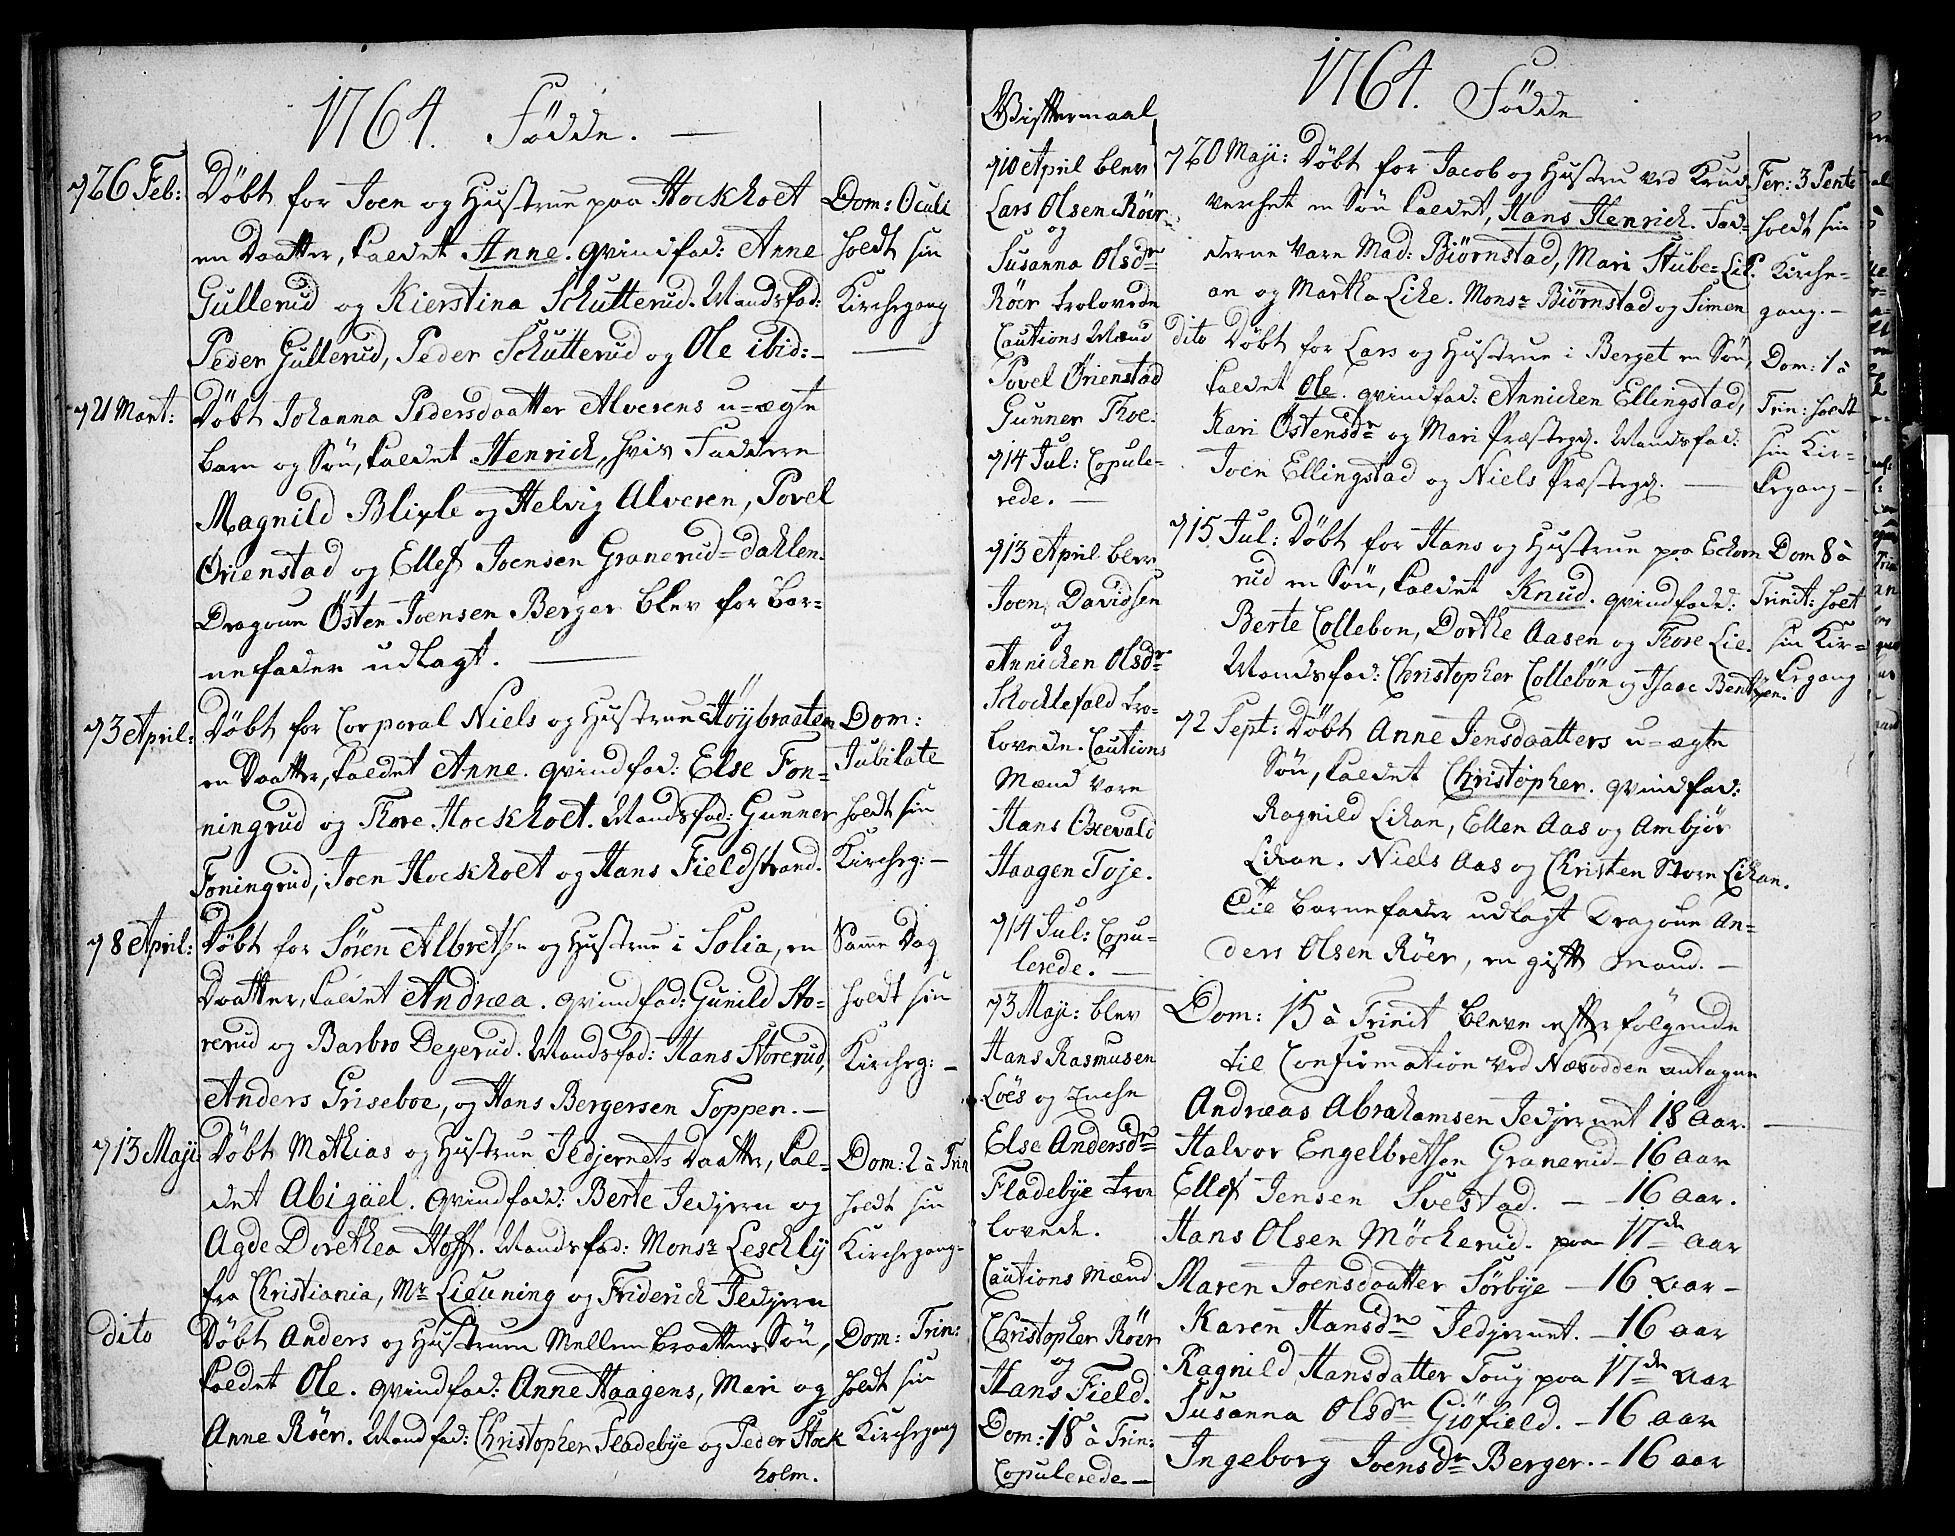 1764. Fødde.
d 26 Feb: Döbt for Joen og Hustrue paa Hockholt
en Daatter, kaldet Anne. Qvindfad: Anne
Gullerud og Kierstina Schutterud. Mandsfad:
Peder Gullerud, Peder Schutterud og Ole ibid:
Dom: Oculi
holdt sin
Kirchegang
d 21 Mart: Döbt Johanna Pedersdaatter Alverens u-ægte
barn og Søn, kaldet Henrich, hvis Faddere
Magnild Blixle og Helvig Alveren, Povel
Ørienstad og Ellef Joensen Granerud-dahlen.
Dragoun Østen Joensen Berger blev for bar-
nefader udlagt.
d 3 April: Döbt for Corporal Niels og Hustrue Høÿbraaten
en Daatter, kaldet Anne. Qvindfad: Else Fon-
ningrud og Thore Hockholt. Mandsfad: Gunner
Foningrud, Joen Hockholt og Hans Fieldstrand.
Dom:
Jubilate
holdt sin
Kircheg:
d 8 April: Döbt for Sören Albretsen og Hustrue i Solia, en
Daatter, kaldet Andrea. Qvindfad: Gunild Sto-
rerud og Barbro Degerud. Mandsfad: Hans Storerud,
Anders Griseboe, og Hans Bergersen Toppen.
Samme Dag
holdt sin
Kircheg:
d 13 Maji Döbt Mathias og Hustrue Jedjernets Daatter, kal-
det Abigäel. Qvindfad: Berte Jedjern og
Agde Dorethea Hoff. Mandsfad: Monsr Leschlÿ
fra Christiania, Mr Lieuning og Friderich Jedjern
Dom: 2 à Trin
holdt sin
Kirchegang
dito Döbt Anders og Hustrues Mellem braattens Søn,
kaldet Ole. Qvindfad: Anne Haagens, Mari og
Anne Röer. Mandfad: Christopher Fladebÿe og Peder Stock
holm.
Dom: Trin:
holdt sin
Kirchegang
d 10 April blev
Lars Olsen Röer
og
Susanna Olsdr
Röer trolovede
Cautions Mænd
Povel Ørienstad
Gunner Thoe.
d 14 Jul: Copule-
rede.
d 13 April blev
Joen Davidsen
og
Annichen Olsdr
Schochlefald tro-
lovede. Cautions
Mænd vare
Hans Oxevald
Haagen Toje.
d 14 Jul: Copu-
lerede.
d 3 Maji: blev
Hans Rasmusen
Löes og Enche
Else Andersdr
Fladebÿe tro
lovede.
Cautions Mænd
Christopher Röer
og
Hans Field.
Dom: 18 à Trin:
Copulerede
1764. Fødde
d 20 Maji: Döbt for Jacob og Hustrue ved Krud
verchet en Søn kaldet, Hans Henrich. Fad-
derne vare Mad: Biørnstad, Mari Stube-Lie
an og Martha Liche. Monsr Biørnstad og Simen
Fer: 3 Pente
holdt sin
Kirche-
gang.
dito Döbt for Lars og Hustrue i Berget en Søn,
kaldet Ole. Qvindfad: Annichen Ellingstad,
Kari Østensdr og Mari Præstegd. Mandsfad:
Joen Ellingstad og Niels Præstegd.
Dom: 1 à
Trin: holdt
sin Kir-
kegang
d 15 Jul: Döbt for Hans og Hustrue paa Echorn
rud en Søn, kaldet Knud. Qvindfad:
Berte Collebon, Dorthe Aasen og Thore Lie.
Mandsfad: Christopher Collebon og Isaac Bentsen.
Dom 8 à
Trinit: holt
sin Kir-
kegang
d 2 Sept: Döbt Anne Jensdaatters u-ægte
Søn, kaldet Christopher. Qvindfad:
Ragnild Lihan, Ellen Aas og Ambjør
Lihan. Niels Aas og Christen Store Lihan.
Til barnefader udlagt Dragoun An-
ders Olsen Röer, en gift Mand.
Dom: 15 à Trinit bleve efterfölgende
til Confirmation ved Næsodden antagne
Andreas Abrahamsen Jedjernet 18 Aar.
Halvor Engelbretsen Granerud 16 aar
Ellef Jensen Svestad. 16 aar.
Hans Olsen Möcherud. paa 17de aar
Maren Joensdaatter Sörbÿe 16 aar
Karen Hansdr Jedjernet. 16 aar
Ragnild Hansdatter Toug paa 17de aar
Susanna Olsdr Giöfield. 16 aar
Ingeborg Joensdr Berger. 16 aar